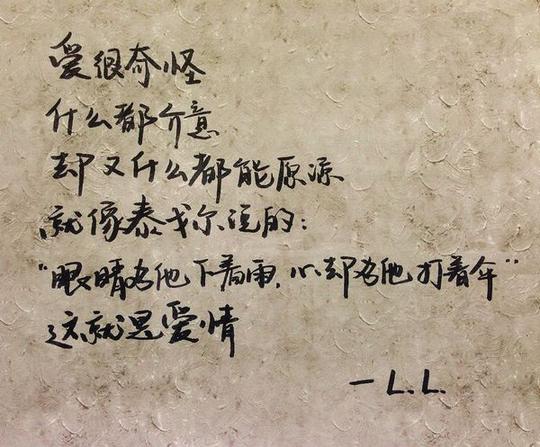 爱很奇怪
什么都介意
却又什么都能原谅
就像泰戈尔说的：
“眼睛为他下着雨，心却为他打着伞”
这就是爱情
— L.L.